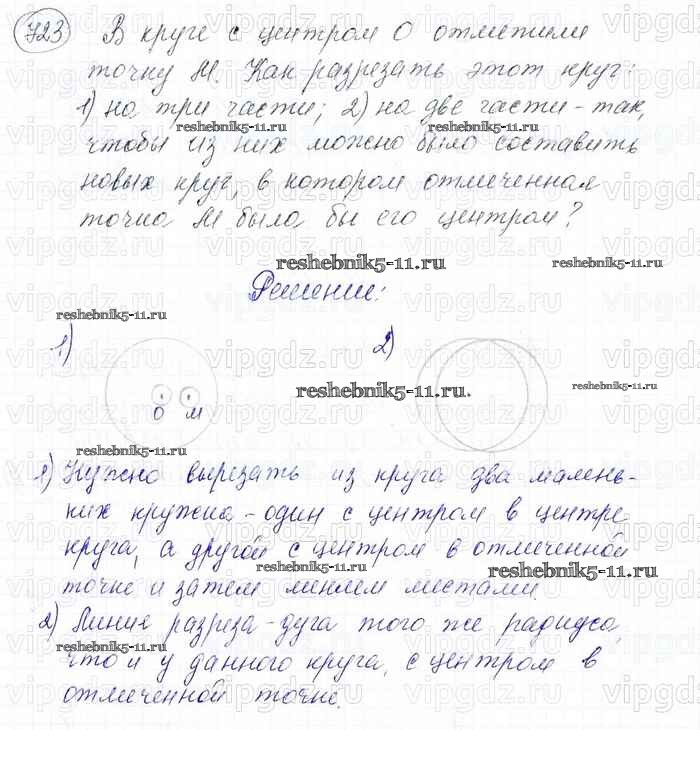 723 В круге с центром О отметили
точку М. Как разрезать этот круг:
1) на три части; 2) на две части - так,
reshebnik5-11.ru reshebnik5-11.ru
чтобы из них можно было составить
новых круг, в котором отмеченная
точка М была бы его центром?
reshebnik5-11.ru reshebnik5-11.ru
Решение:
reshebnik5-11.ru
1) 2)
reshebnik5-11.ru. reshebnik5-11.ru
О М
reshebnik5-11.ru
1) Нужно вырезать из круга два малень-
ких кружка - один с центром в центре
круга, а другой с центром в отмеченной
reshebnik5-11.ru reshebnik5-11.ru
точке и затем меняем местами
2) Линия разреза - дуга того же радиуса,
reshebnik5-11.ru
что и у данного круга, с центром в
отмеченной точке.
vipgdz.ru